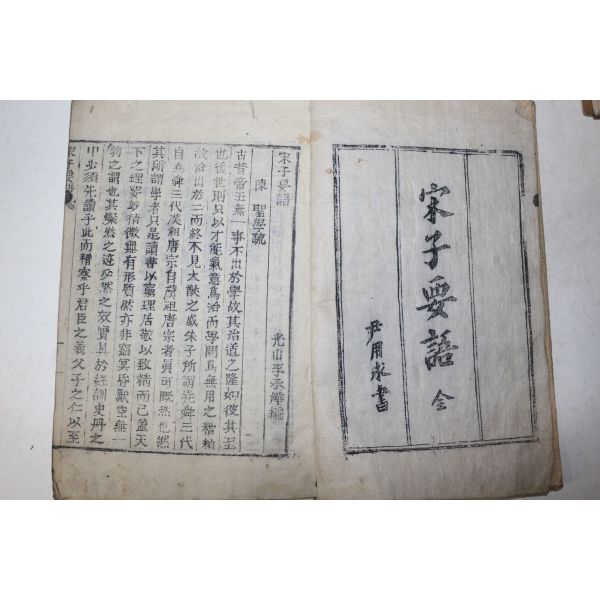 宋子要語 全
尹用求書
宋子要語
光山李承
陳 聖學疏
古昔帝王無一事不出於學故其治道之隆如彼其至
也後世則只以才能氣意爲治而學問爲無用之糟粕
故治出於二而終不見大猷之盛朱子所謂堯舜三代
自堯舜三代漢祖唐宗自漢祖唐宗者眞可慨然也然
其所謂學者只是讀書以窮理居敬以致精而已蓋天
下之理要妙精微與有形質然亦非窈冥昏默空無一
物之謂也其燦然之迹必然之效實具於經訓史冊之
中必須先講乎此而精察乎君臣之義父子之仁以至
宋子要語